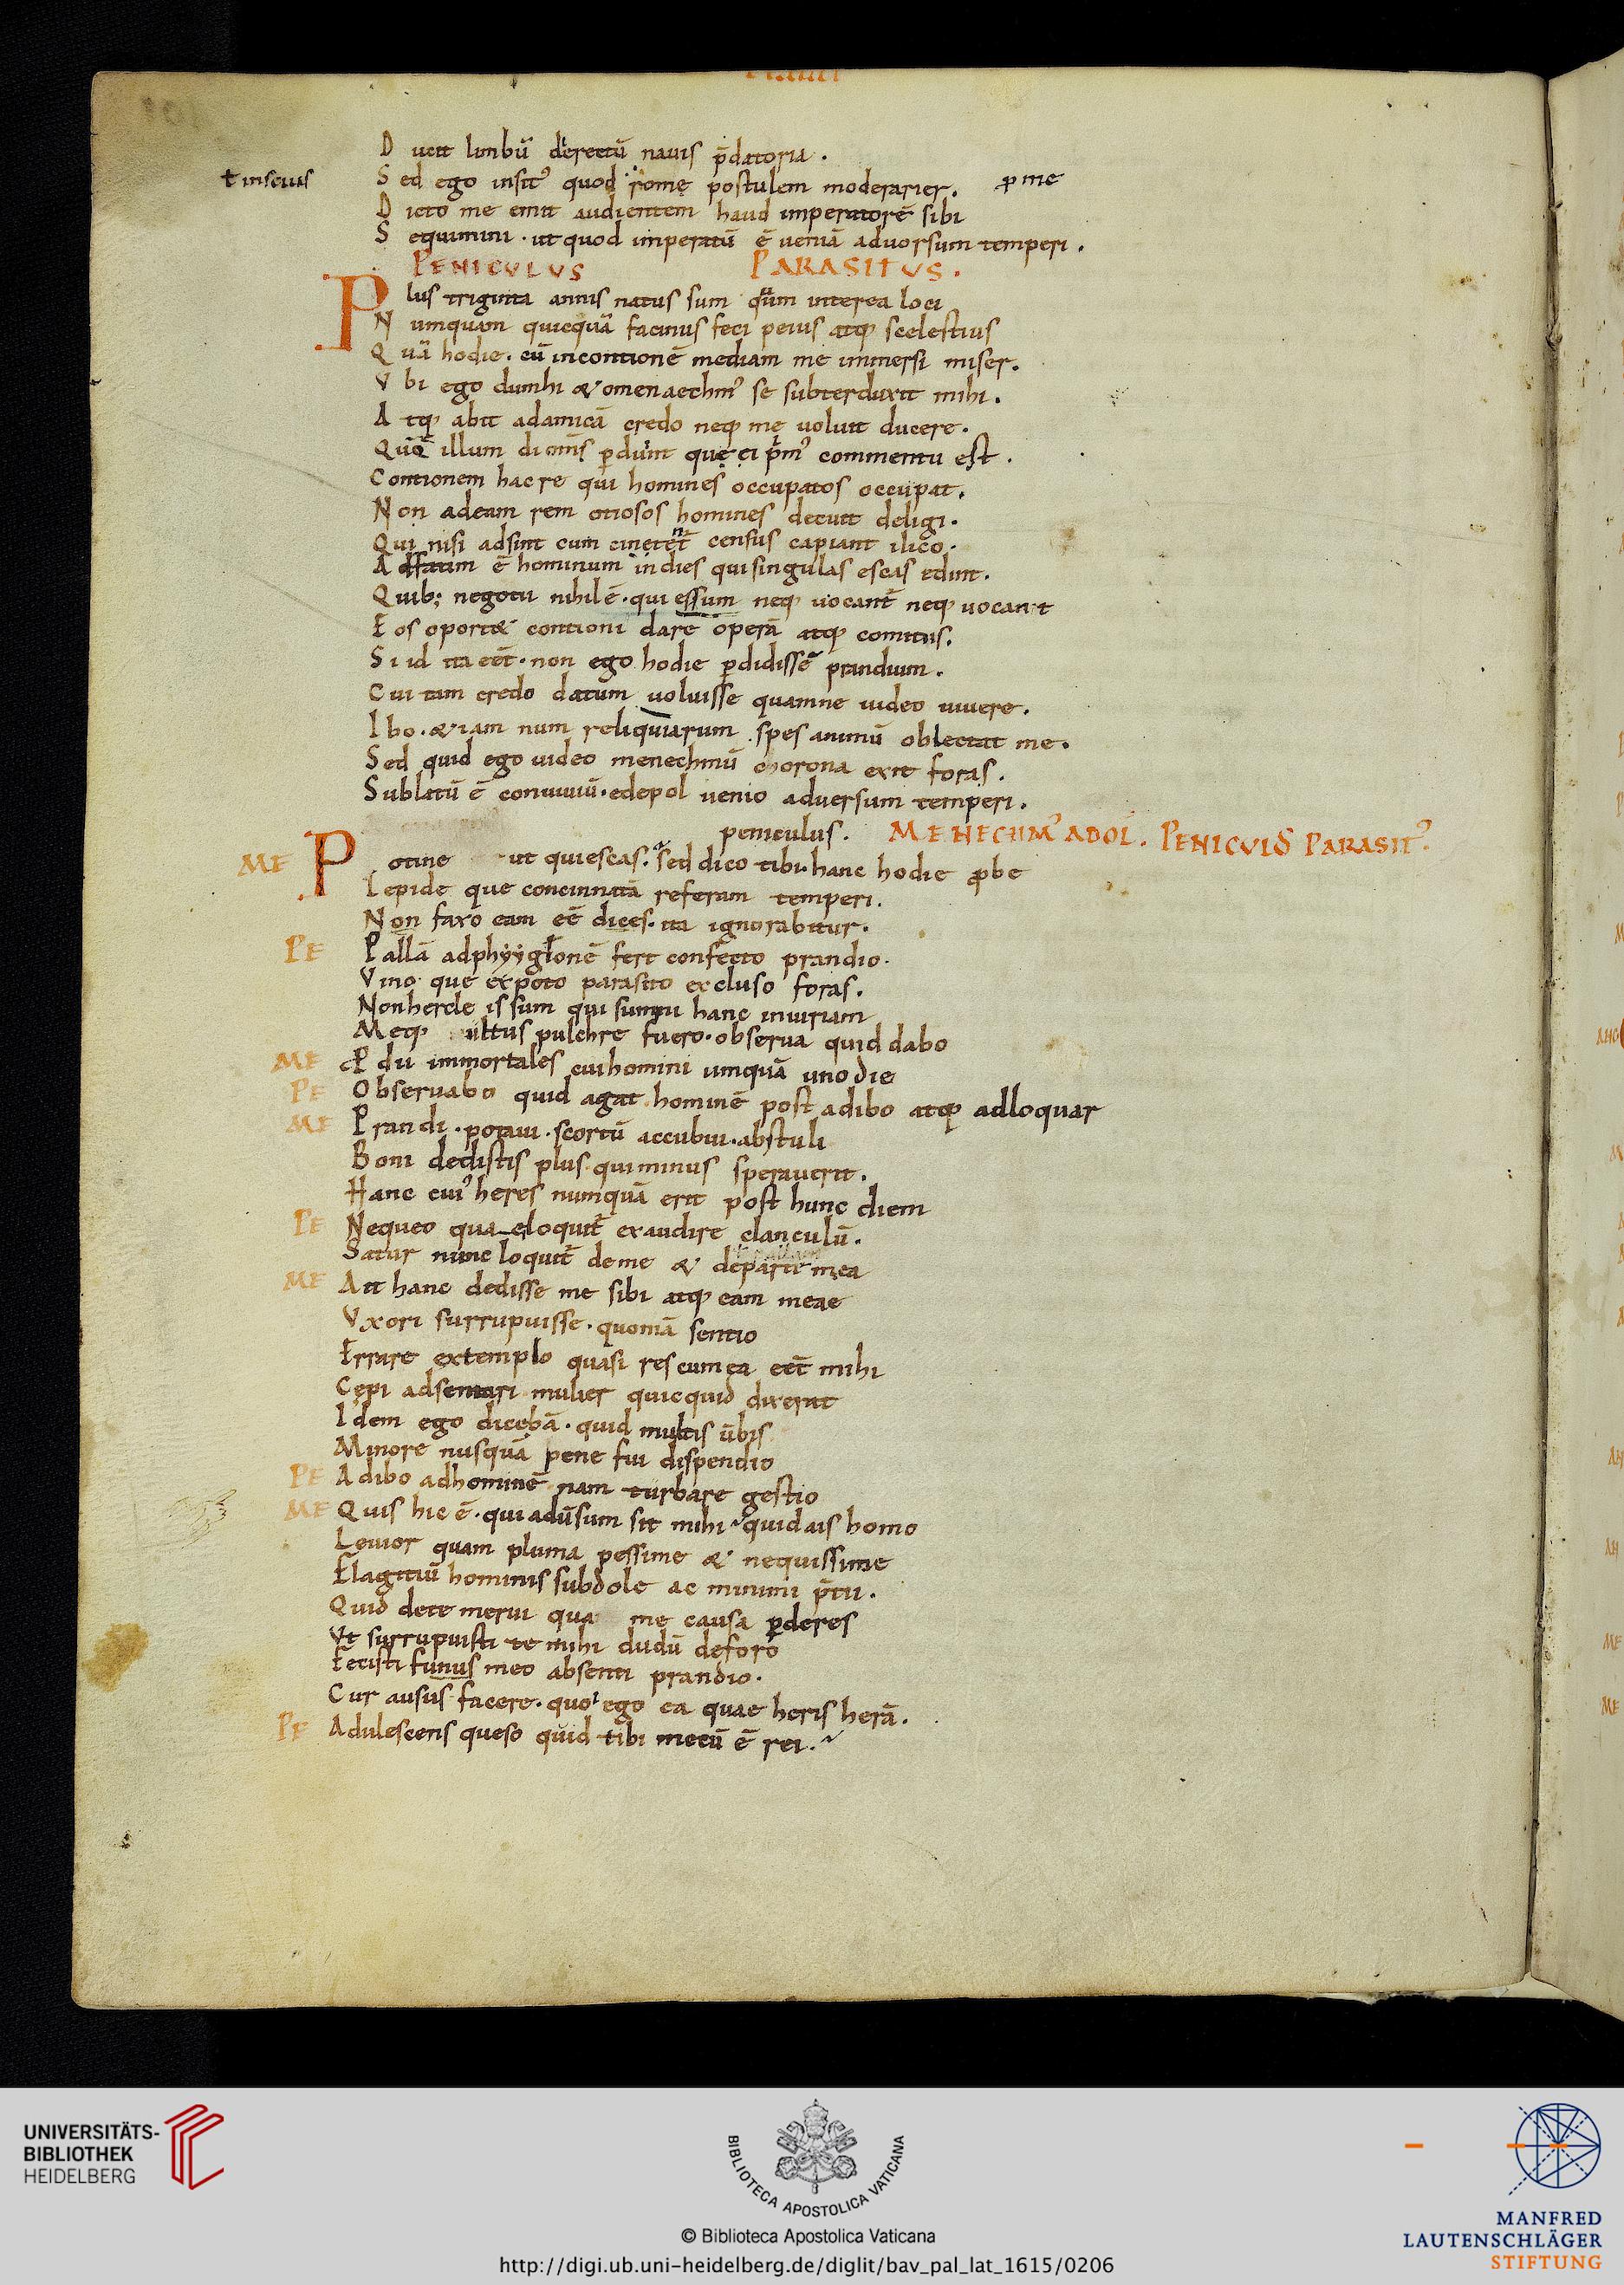 D ucit limbũ derectũ nauis p̃datoria.
ł inscius S ed ego insit᾽ quod rome postulem moderarier. ꝓ me
D icto me emit audientem haud imperatorẽ sibi
S equimini. ut quod imperatũ ẽ ueniã aduorsum temperi.
PENICULUS PARASITUS.
Plus triginta annis natus sum quum interea loci
N umquam quicquã facinus feci peius atq; scelestius
Q uã hodie. cũ incontionẽ mediam me immersi miser.
V bi ego dumhi & omenaechm᾽ se subterduxit mihi.
A tq; abit adamicã credo neq; me uoluit ducere.
illum di om̃s ꝑdunt que ei p̃m᾽ commentu est.
Contionem hac re qui homines occupatos occupat.
Non adeam rem otiosos homines decuit deligi.
Qui nisi adsint cum census capiant ilico.
A dfatim ẽ hominum indies qui singulas escas edint.
Quib; negotii nihil ẽ. qui essum neq; uocant̃ neq; uocant
E os oport& contioni dare operã atq; comitiis.
Si id ita eẽt. non ego hodie ꝑdidissẽ prandium.
Cui tam credo datum uoluisse quamne uideo uiuere.
Ibo. &iam num reliquiarum spes animũ oblectat me.
Sed quid ego uideo menechmũ chorona exit foras.
Sublatũ ẽ conuiuiũ. edepol uenio aduersum temperi.
peniculus. MENECHM᾽ ADOL. PENICULUS PARASIT᾽.
ME Potine ut quiescas. sed dico tibi. hanc hodie ꝓbe
Lepide que concinnatã referam temperi.
Non faxo eam eẽ dices. ita ignorabitur.
PE Pallã fert confecto prandio.
Vino que expoto parasito excluso foras.
Non hercle is sum qui sum hanc iniuriam
Meq; ultus pulchre fuero. obserua quid dabo
ME P dii immortales cui homini umquã uno die
PE Obseruabo quid agat hominẽ post adibo atq; adloquar
ME Prandi. potaui. scortũ accubui. abstuli
Boni dedistis plus qui minus sperauerit.
Hanc cui᾽ heres numquã erit post hunc diem
PE Nequeo qua eloquit̃ exaudire clanculũ.
Satur nunc loquit̃ deme & departe mea
ME Ait hanc dedisse me sibi atq; eam meae
Vxori surrupuisse. quoniã sentio
Errare extemplo quasi res cum ea eẽt mihi
Cepi adsentari mulier quicquid dixerat
Idem ego dicebã. quid multis ũbis
Minore nusquã pene fui dispendio
PE Adibo adhominẽ nam turbare gestio
ME Quis hic ẽ. qui adũsum sit mihi quid ais homo
Leuior quam pluma pessime & nequissime
Flagitiũ hominis subdole ac minimi p̃tii.
Quid dete merui qua me causa ꝑderes
Vt surrupuisti te mihi dudũ deforo
Fecisti funus meo absenti prandio.
Cur ausus facere. quoi ego ea quae heris herã.
PE Adulescens queso quid tibi mecũ ẽ rei.
UNIVERSITÄTS-
BIBLIOTHEK
HEIDELBERG
BIBLIOTECA APOSTOLICA VATICANA
© Biblioteca Apostolica Vaticana
http://digi.ub.uni-heidelberg.de/diglit/bav_pal_lat_1615/0206
MANFRED
LAUTENSCHLÄGER
STIFTUNG